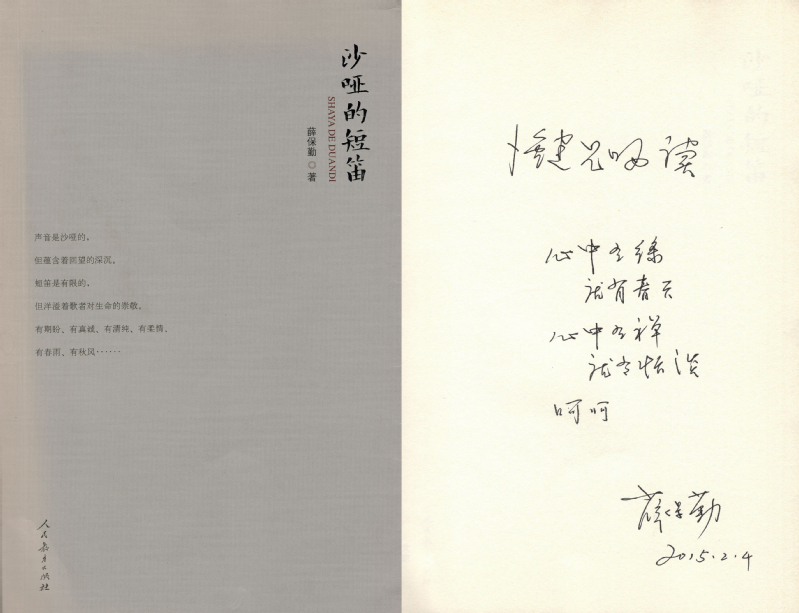 沙哑的短笛
SHAYA DE DUANDI
薛保勤◎著
声音是沙哑的，
但蕴含着回望的深沉。
短笛是有限的，
但洋溢着歌者对生命的崇敬。
有期盼、有真诚、有清纯、有柔情，
有春雨、有秋风……
人民教育出版社
建兄 读
心中有绿
就有春天
心中有禅
就有恬淡
呵呵
薛保勤
2015.2.4